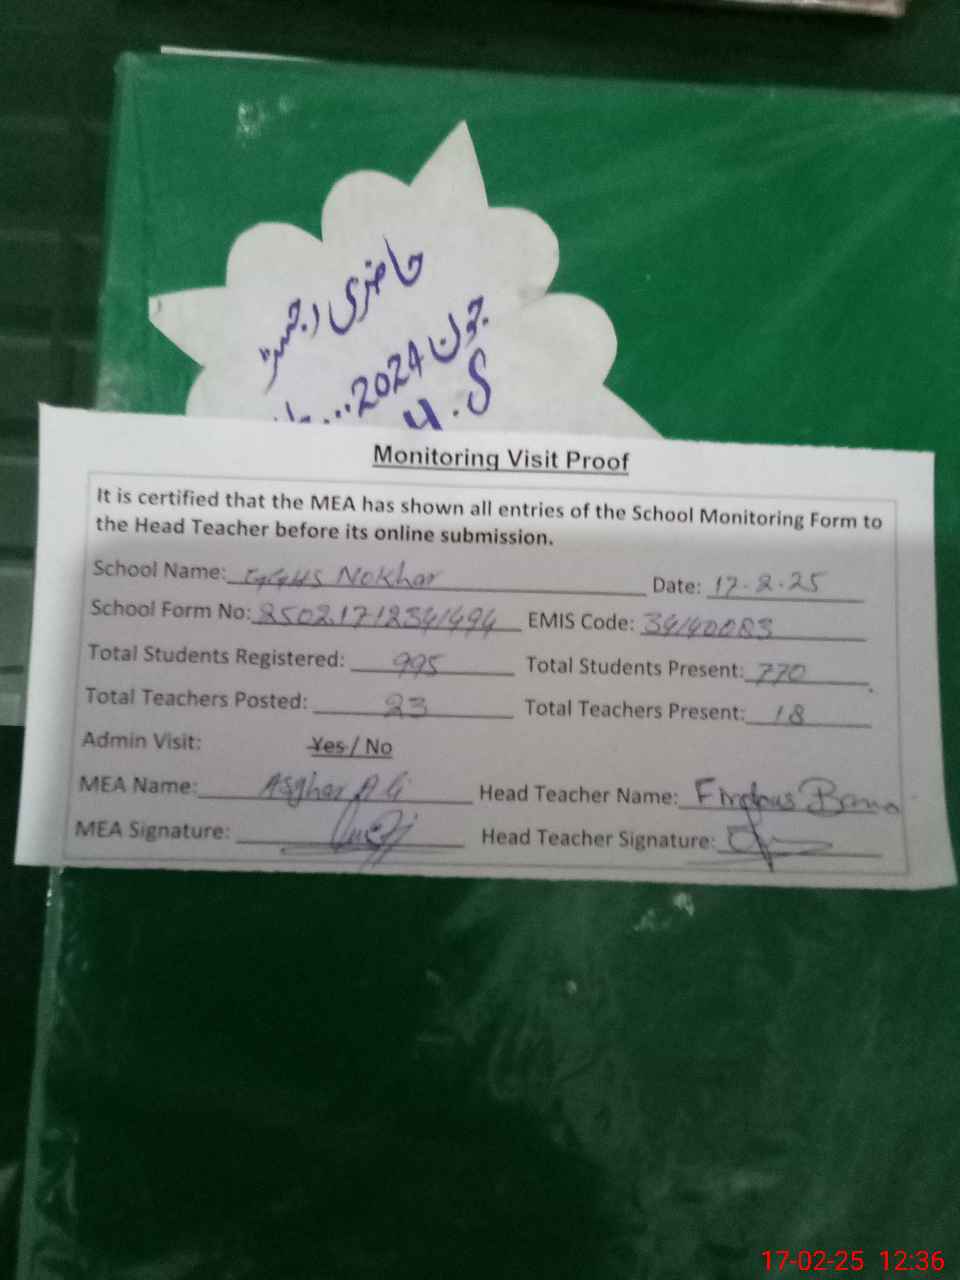 حاضری رجسٹر
جون 2024...
Monitoring Visit Proof
It is certified that the MEA has shown all entries of the School Monitoring Form to
the Head Teacher before its online submission.
School Name: GGHS Nokhar Date: 17-2-25
School Form No: 25021712341494 EMIS Code: 34140083
Total Students Registered: 995 Total Students Present: 770
Total Teachers Posted: 23 Total Teachers Present: 18
Admin Visit: Yes / No
MEA Name: Asghar Ali Head Teacher Name: Firdous Bano
MEA Signature: Head Teacher Signature:
17-02-25 12:36